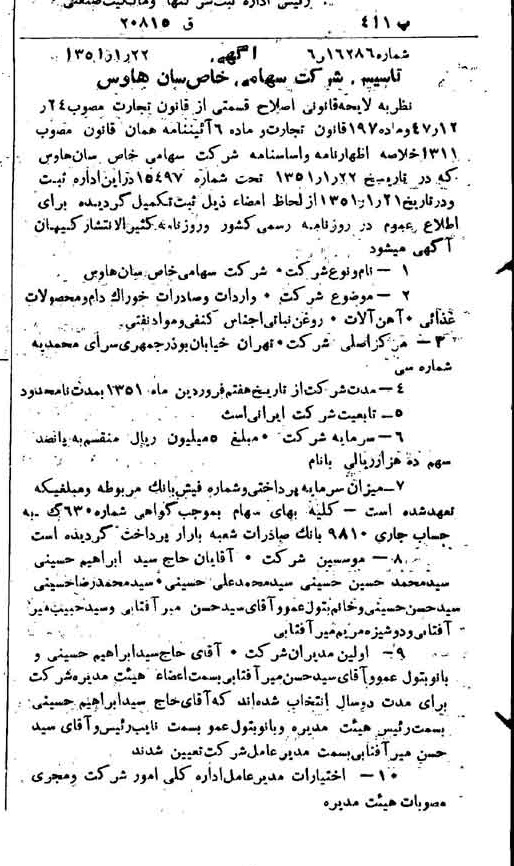 رئیس اداره ثبت شرکتها و مالکیت صنعتی
پ ۴۱۱ ق ۲۰۸۱۵
شماره ۱۶۲۸۶ر۶ آگهی ۱۳۵۱ر۱ر۲۲
تاسیس شرکت سهامی خاص سان هاوس
نظر به لایحه قانونی اصلاح قسمتی از قانون تجارت مصوب ۲۴ر
۱۲ر۴۷ و ماده ۱۹۷ قانون تجارت و ماده ۶ آئیننامه همان قانون مصوب
۱۳۱۱ خلاصه اظهارنامه و اساسنامه شرکت سهامی خاص سان هاوس
که در تاریخ ۱۳۵۱ر۱ر۲۲ تحت شماره ۱۵۴۹۷ در این اداره ثبت
و در تاریخ ۱۳۵۱ر۱ر۲۱ از لحاظ امضاء ذیل ثبت تکمیل گردیده برای
اطلاع عموم در روزنامه رسمی کشور و روزنامه کثیرالانتشار کیهان
آگهی میشود
۱ – نام و نوع شرکت • شرکت سهامی خاص سان هاوس
۲ – موضوع شرکت • واردات و صادرات خوراك دام و محصولات
غذائی • آهن آلات • روغن نباتی اجناس کنفی و مواد نفتی
۳ – مرکز اصلی شرکت • تهران خیابان بوذرجمهری سرای محمدیه
شماره سی
۴ – مدت شرکت از تاریخ هفتم فروردین ماه ۱۳۵۱ بمدت نامحدود
۵ – تابعیت شرکت ایرانی است
۶ – سرمایه شرکت • مبلغ ۵ میلیون ریال منقسم به پانصد
سهم ده هزار ریالی با نام
۷ – میزان سرمایه پرداختی و شماره فیش بانك مربوطه و مبلغیکه
تعهد شده است – کلیه بهای سهام بموجب گواهی شماره ۶۳۰ ك به
حساب جاری ۹۸۱۰ بانك صادرات شعبه بازار پرداخت گردیده است
۸ – موسسین شرکت • آقایان حاج سید ابراهیم حسینی
سیدمحمد حسین حسینی سیدمحمدعلی حسینی • سیدمحمدرضا حسینی
سیدحسن حسینی و خانم بتول عمو و آقای سیدحسن میر آفتابی و سید حبیب میر
آفتابی و دوشیزه مریم میر آفتابی
۹ – اولین مدیران شرکت • آقای حاج سید ابراهیم حسینی و
بانو بتول عمو و آقای سیدحسن میر آفتابی بسمت اعضاء هیئت مدیره شرکت
برای مدت دو سال انتخاب شده‌اند که آقای حاج سید ابراهیم حسینی
بسمت رئیس هیئت مدیره و بانو بتول عمو بسمت نایب رئیس و آقای سید
حسن میر آفتابی بسمت مدیر عامل شرکت تعیین شدند
۱۰ – اختیارات مدیر عامل اداره کلی امور شرکت و مجری
مصوبات هیئت مدیره